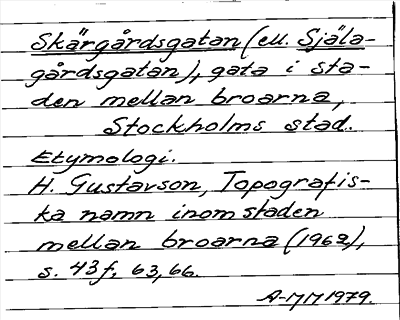 Skärgårdsgatan (ell. Själa-
gårdsgatan), gata i sta-
den mellan broarna,
Stockholms stad.
Etymologi.
H. Gustavson, Topografis-
ka namn inom staden
mellan broarna (1962),
s. 43f, 63, 66.
A-MM 1979.